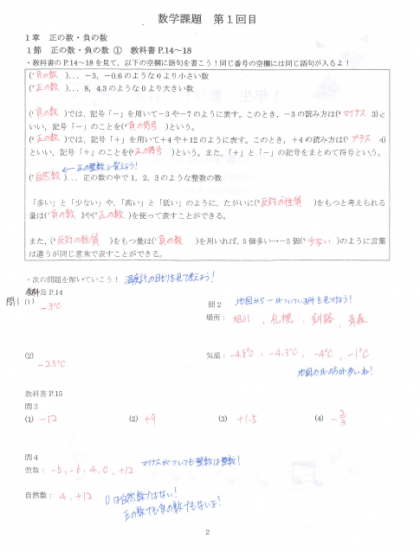 数学課題 第1回目
1章 正の数・負の数
1節 正の数・負の数 ① 教科書 P.14～18
・教科書の P.14～18 を見て、以下の空欄に語句を書こう！同じ番号の空欄には同じ語句が入るよ！
(負の数)… -3、-0.6 のような 0 より小さい数
(正の数)… 8、4.3 のような 0 より大きい数
(負の数)では、記号「－」を用いて-3 や-7 のように表す。このとき、-3 の読み方は(マイナス 3)と
いい、記号「－」のことを(負の符号)という。
(正の数)では、記号「＋」を用いて+4 や+12 のように表す。このとき、+4 の読み方は(プラス 4)
といい、記号「＋」のことを(正の符号)という。また、「＋」と「－」の記号をまとめて符号という。
←正の整数と言えよう！
(自然数)… 正の数の中で 1、2、3 のような整数の数
「多い」と「少ない」や、「高い」と「低い」のように、たがいに(反対の性質)をもつと考えられる
量は(負の数)や(正の数)を使って表すことができる。
また、(反対の性質)をもつ量は(負の数)を用いれば、5 個多い→-5 個(少ない)のように言葉
は違うが同じ意味で表すことができる。
・次の問題を解いていこう！ 温度計の目もりを見て考えよう！
教科書 P.14
問1 (1) -3℃
問2 地図から一かついている所を見つけよう！
場所： 旭川、札幌、釧路、青森
(2) -2.5℃
気温： -4.8℃、-4.3℃、-4℃、-1℃
地図の北の方が多いね！
教科書 P.15
問3
(1) -12 (2) +9 (3) +1.5 (4) -2/3
問4
マイナスがついても整数は整数！
整数： -5, -6, 4, 0, +12
自然数： 4, +12
0は自然数ではない！
正の数でも負の数でもないよ！
2